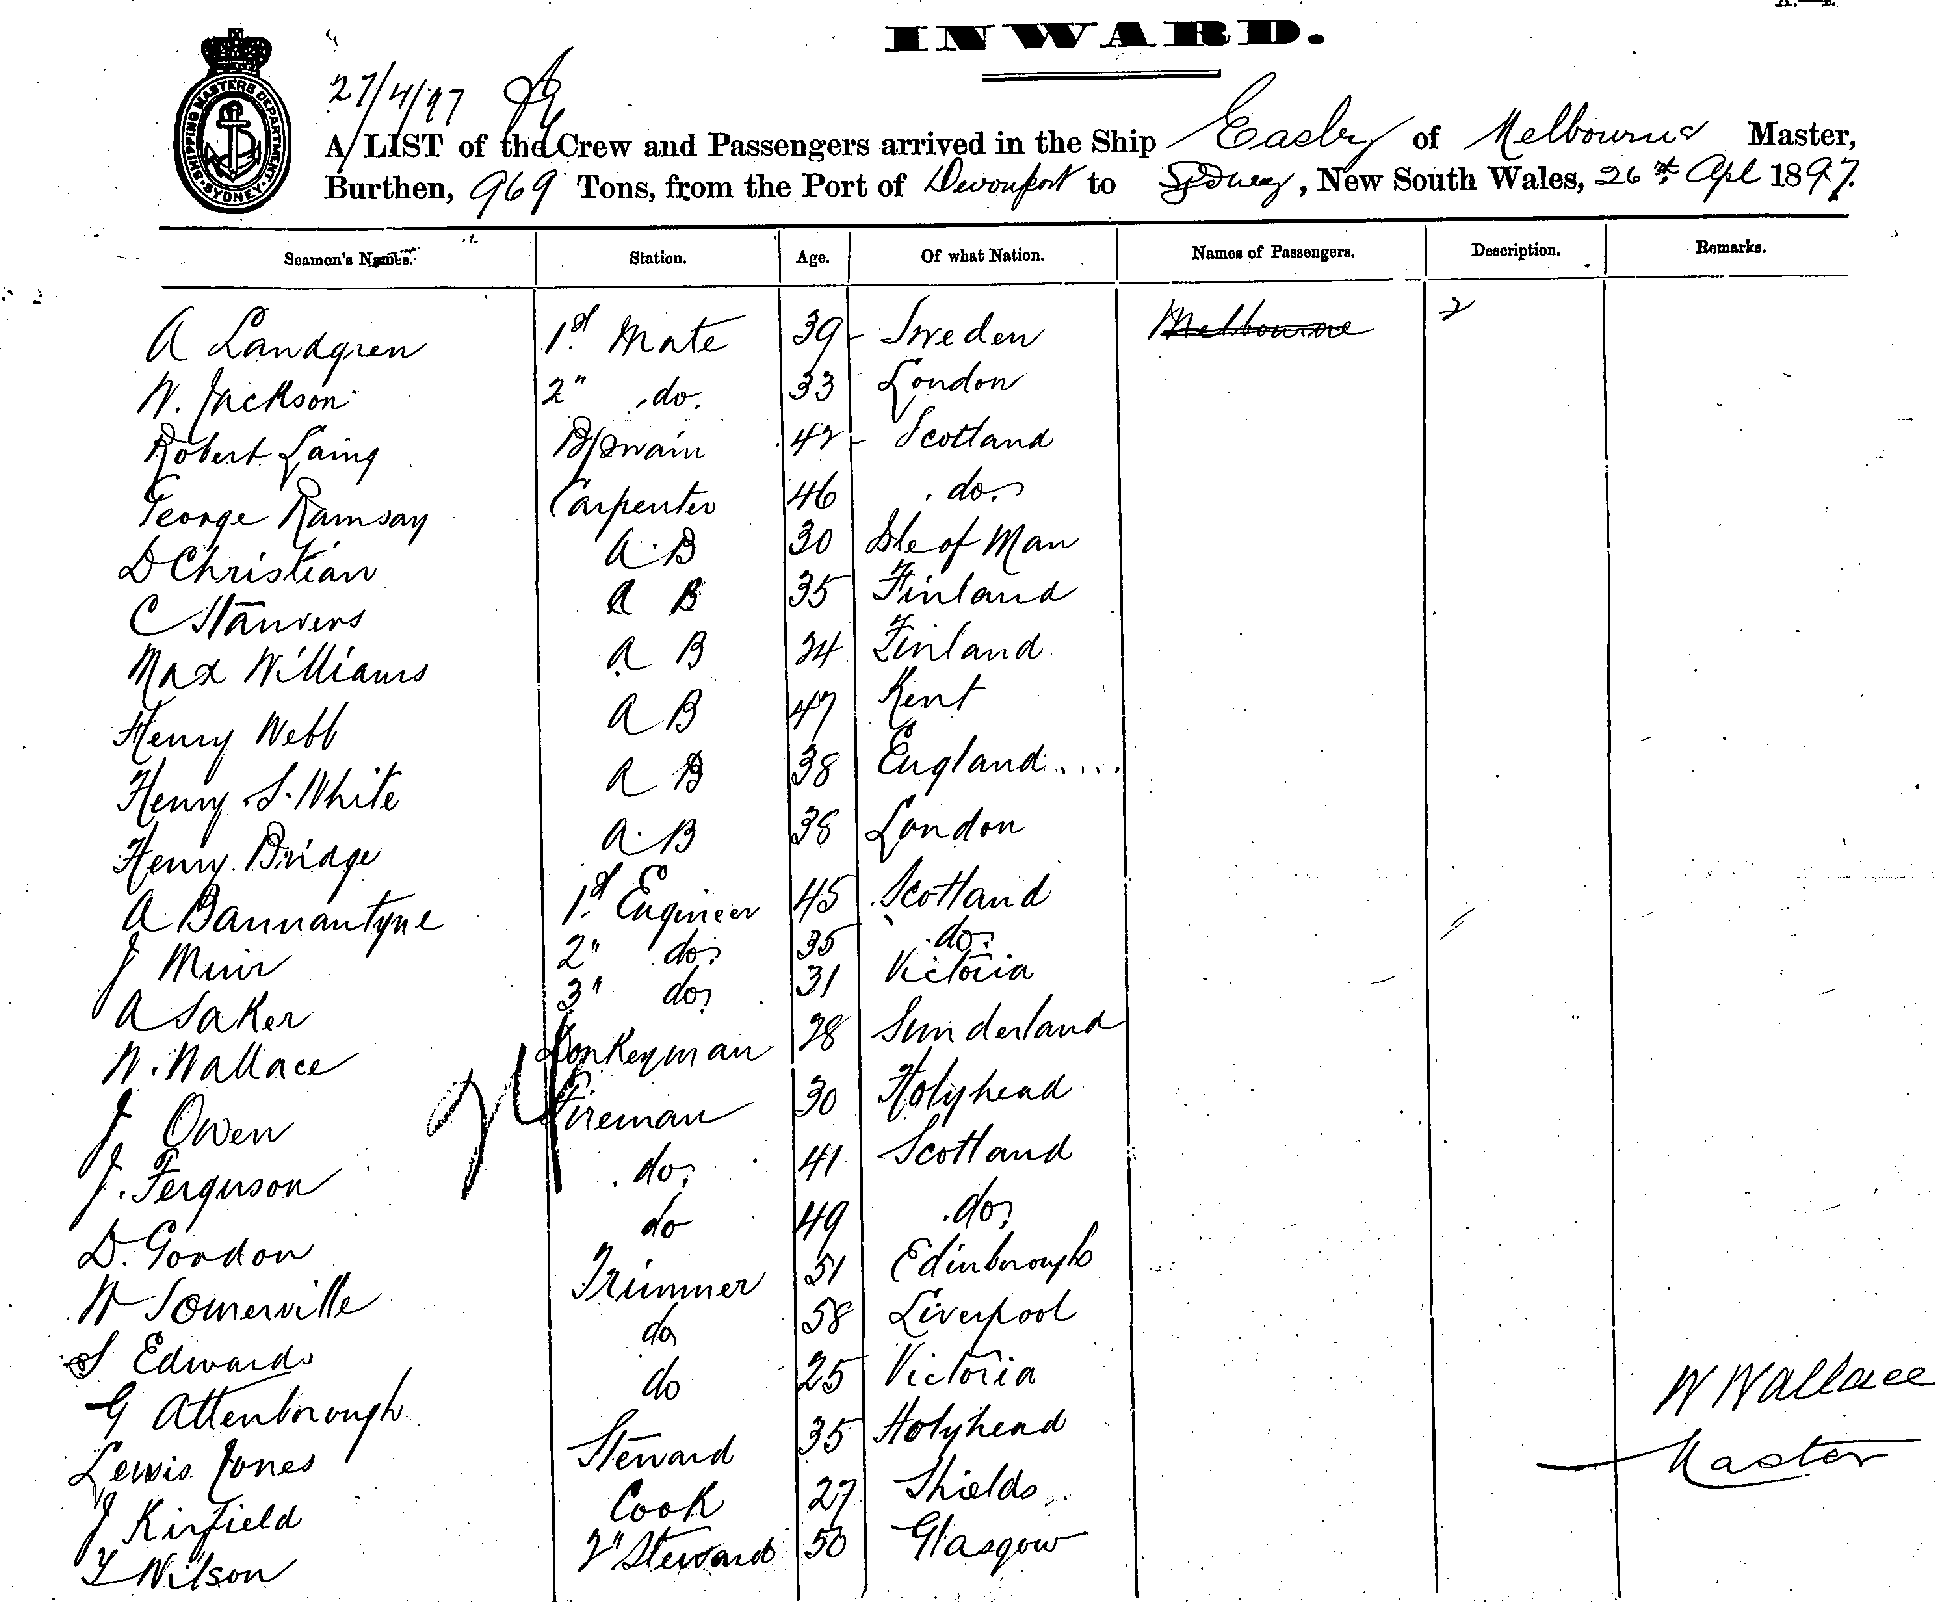 INWARD.
27/4/97
A LIST of the Crew and Passengers arrived in the Ship Easby of Melbourne Master,
Burthen, 969 Tons, from the Port of Devonport to Sydney, New South Wales, 26th Apl 1897.
SHIPPING MASTERS DEPARTMENT SYDNEY
Seamen's Names. Station. Age. Of what Nation. Names of Passengers. Description. Remarks.
A Landgren 1st Mate 39 Sweden Melbourne
W. Jackson 2" do. 33 London
Robert Laing B/swain 42 Scotland
George Ramsay Carpenter 46 do.
D Christian A.B 30 Isle of Man
C Stanvers A B 35 Finland
Max Williams A B 24 Finland
Henry Webb A B 47 Kent
Henry S. White A B 38 England
Henry Bridge A.B 38 London
A Bannantyne 1st Engineer 45 Scotland
J Muir 2" do. 35 do.
A Saker 3" do. 31 Victoria
W. Wallace Donkeyman 28 Sunderland
J. Owen Fireman 30 Holyhead
J. Ferguson do. 41 Scotland
D. Gordon do 49 do.
W Somerville Trimmer 51 Edinborough
S Edwards do 58 Liverpool
G Attenborough do 25 Victoria
Lewis Jones Steward 35 Holyhead
J Kirfield Cook 27 Shields
T Wilson 2" Steward 50 Glasgow
24
W Wallace
Master